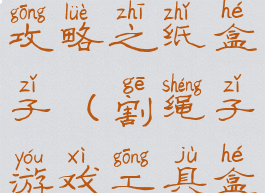 gōng lüè zhī zhǐ hé
攻略之纸盒
zǐ gē shéng zǐ
子(割绳子
yóu xì gōng jù hé
游戏工具盒